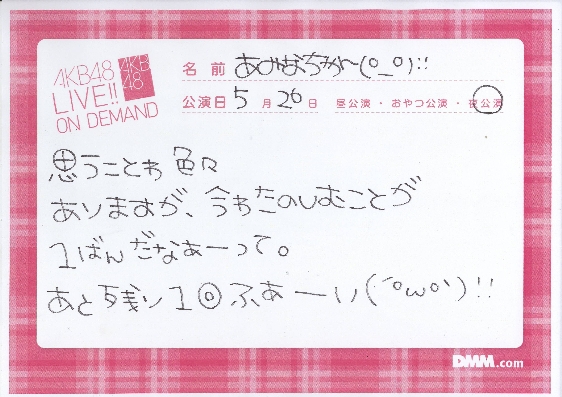 AKB48
LIVE!!
ON DEMAND
AKB
48
名前 あひゃまちゅか〜(○_○)!!
公演日 5月26日 昼公演・おやつ公演・夜公演
思うことわ色々
ありますが、今わたのしむことが
1ばんだなぁーって。
あと残り1回ふぁーい(´°ω°｀)!!
DMM.com